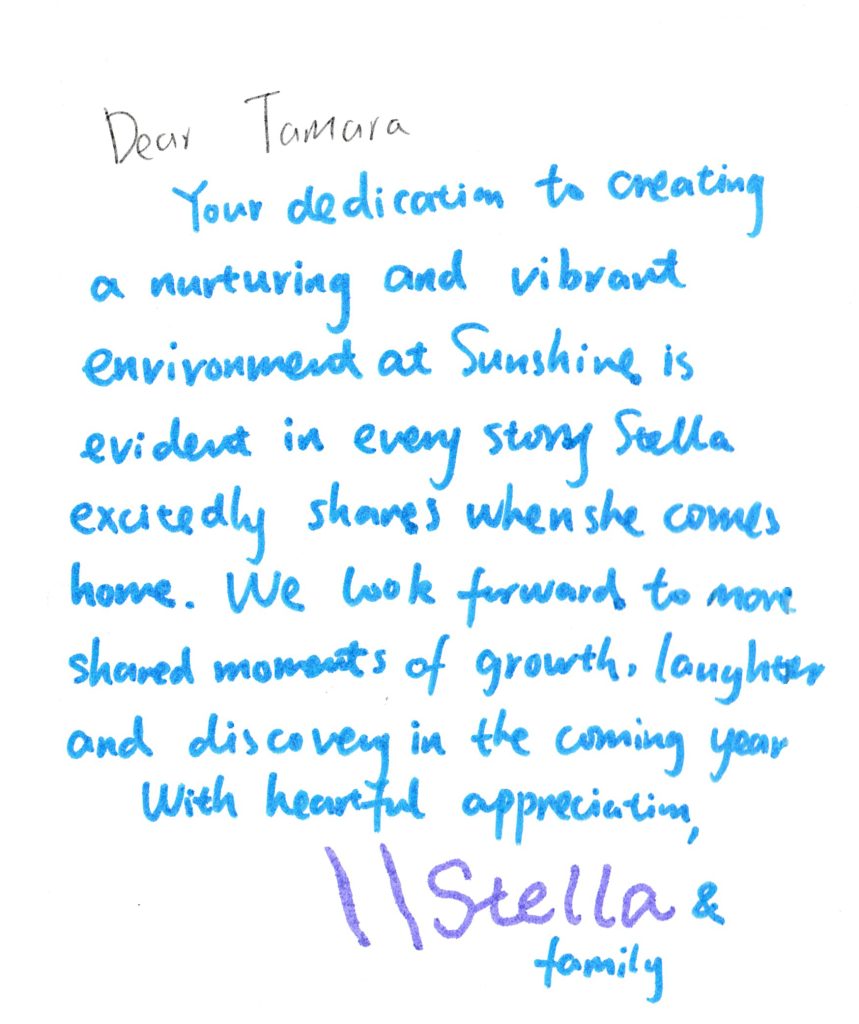 Dear Tamara
Your dedication to creating
a nurturing and vibrant
environment at Sunshine is
evident in every story Stella
excitedly shares when she comes
home. We look forward to more
shared moments of growth, laughter
and discovery in the coming year
With heartful appreciation,
\\Stella &
family